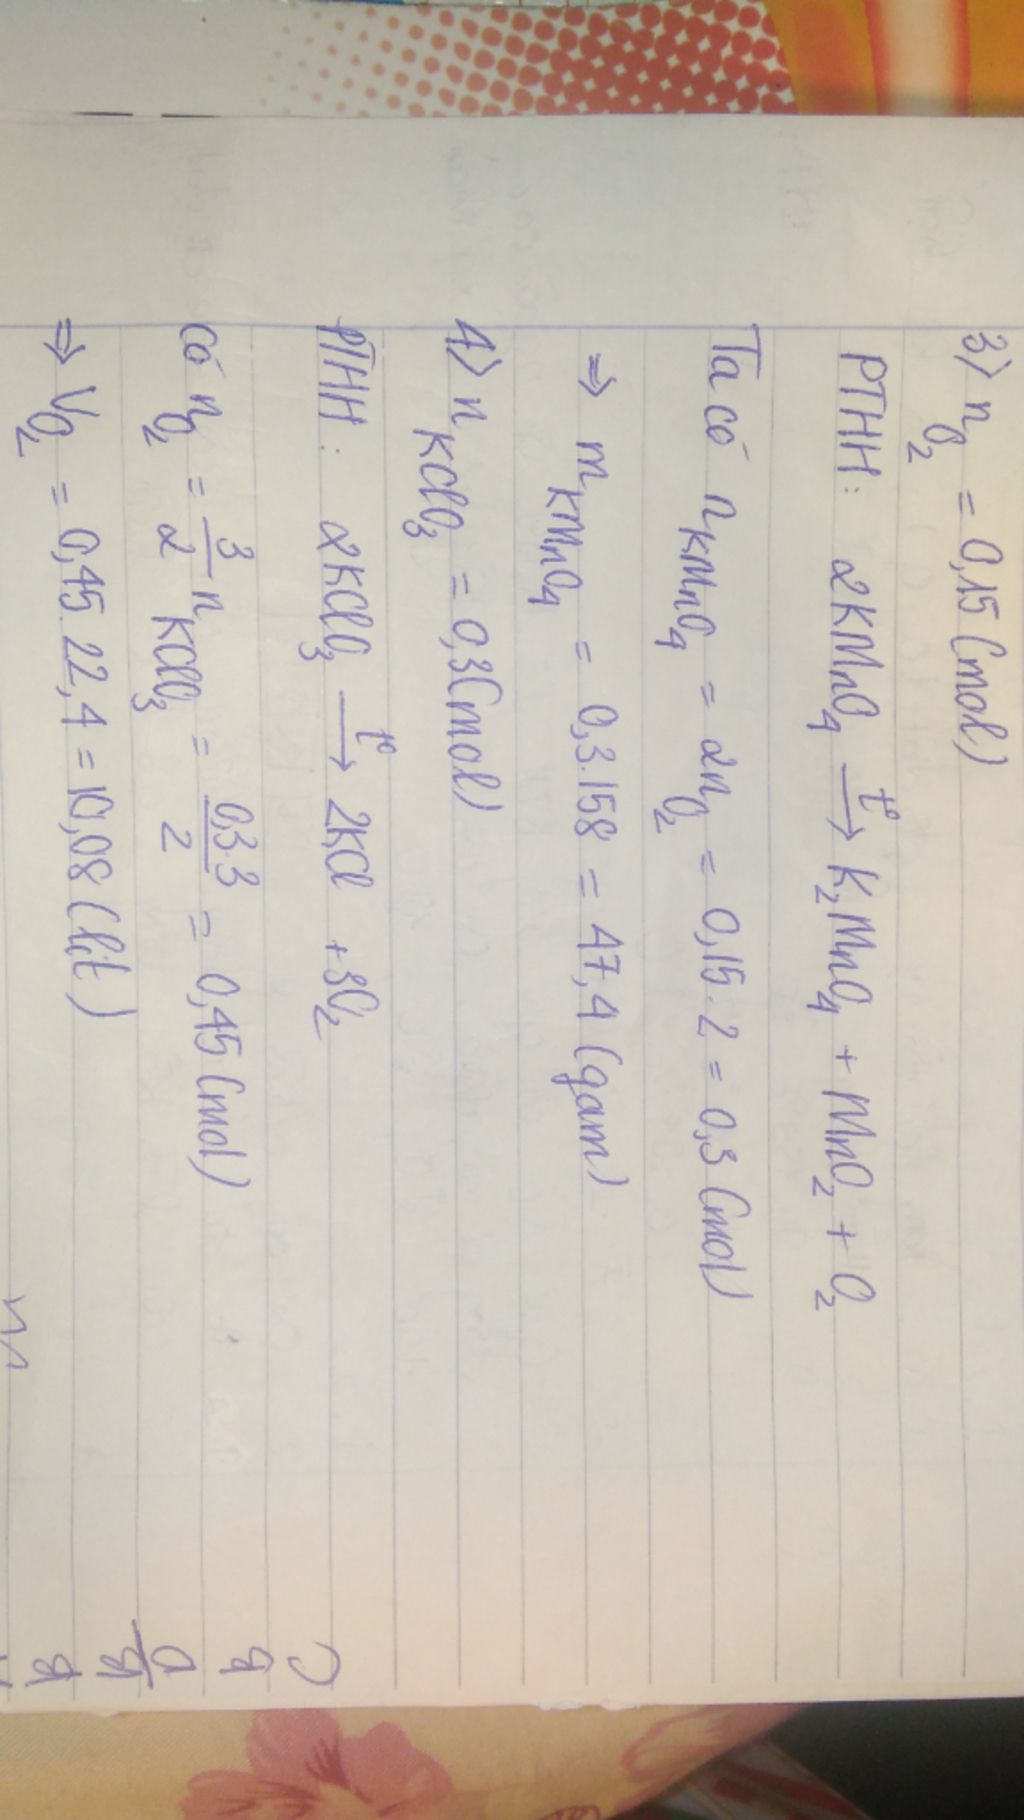 3) n O₂ = 0,15 (mol)
PTHH: 2KMnO₄ —t°→ K₂MnO₄ + MnO₂ + O₂
Ta có n KMnO₄ = 2n O₂ = 0,15 . 2 = 0,3 (mol)
⇒ m KMnO₄ = 0,3.158 = 47,4 (gam)
4) n KClO₃ = 0,3 (mol)
PTHH: 2KClO₃ —t°→ 2KCl + 3O₂
Có n O₂ = 3/2 n KClO₃ = 0,3.3/2 = 0,45 (mol)
⇒ V O₂ = 0,45. 22,4 = 10,08 (lít)